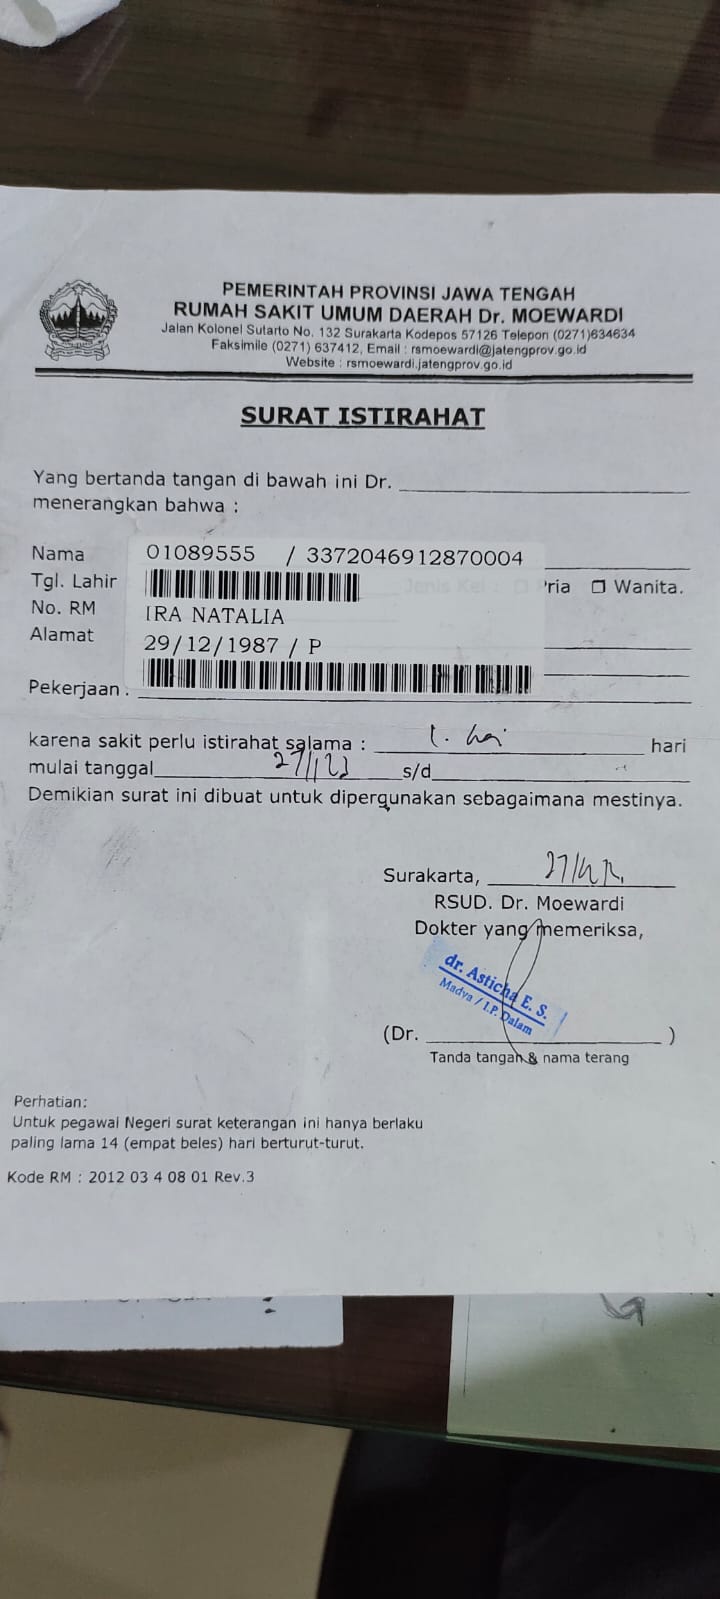 PEMERINTAH PROVINSI JAWA TENGAH
RUMAH SAKIT UMUM DAERAH Dr. MOEWARDI
Jalan Kolonel Sutarto No. 132 Surakarta Kodepos 57126 Telepon (0271)634634
Faksimile (0271) 637412, Email : rsmoewardi@jatengprov.go.id
Website : rsmoewardi.jatengprov.go.id
SURAT ISTIRAHAT
Yang bertanda tangan di bawah ini Dr.
menerangkan bahwa :
Nama 01089555 / 3372046912870004
Tgl. Lahir Jenis Kel : Pria Wanita.
No. RM IRA NATALIA
Alamat 29/12/1987 / P
Pekerjaan :
karena sakit perlu istirahat salama : 1. hari hari
mulai tanggal s/d
Demikian surat ini dibuat untuk dipergunakan sebagaimana mestinya.
Surakarta,
RSUD. Dr. Moewardi
Dokter yang memeriksa,
dr. Asticha E. S.
Madya / I.P. Dalam
(Dr. )
Tanda tangan & nama terang
Perhatian:
Untuk pegawai Negeri surat keterangan ini hanya berlaku
paling lama 14 (empat beles) hari berturut-turut.
Kode RM : 2012 03 4 08 01 Rev.3